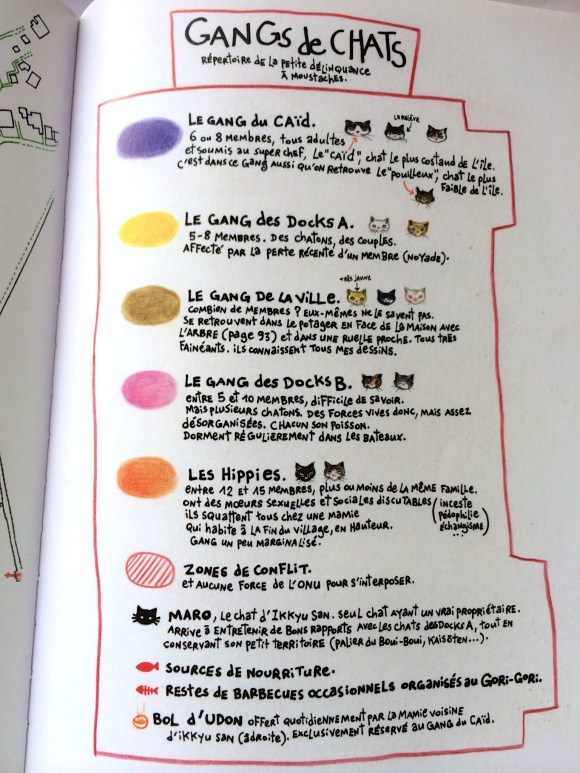 GANGS de CHATS
RÉPERTOIRE DE LA PETITE DÉLINQUANCE
À MOUSTACHES.
LE GANG du CAÏD.
LA RELÈVE
6 ou 8 MEMBRES, TOUS ADULTES
et SOUMIS AU SUPER CHEF, LE "CAÏD", CHAT LE PLUS COSTAUD DE L'ÎLE.
C'EST DANS CE GANG AUSSI QU'ON RETROUVE LE "POUILLEUX", CHAT LE PLUS
FAIBLE DE L'ÎLE.
LE GANG des DOCKS A.
5-8 MEMBRES. DES CHATONS, DES COUPLES.
AFFECTÉ PAR LA PERTE RÉCENTE D'UN MEMBRE (NOYADE).
LE GANG DE LA VILLE.
TRÈS JAUNE
COMBIEN DE MEMBRES ? EUX-MÊMES NE LE SAVENT PAS.
SE RETROUVENT DANS LE POTAGER EN FACE DE LA MAISON AVEC
L'ARBRE (page 93) et DANS UNE RUELLE PROCHE. TOUS TRÈS
FAINÉANTS. ILS CONNAISSENT TOUS MES DESSINS.
LE GANG des DOCKS B.
ENTRE 5 et 10 MEMBRES, DIFFICILE DE SAVOIR.
MAIS PLUSIEURS CHATONS. DES FORCES VIVES DONC, MAIS ASSEZ
DÉSORGANISÉES. CHACUN SON POISSON.
DORMENT RÉGULIEREMENT DANS LES BATEAUX.
LES HIPPIES.
ENTRE 12 ET 15 MEMBRES, PLUS OU MOINS DE LA MÊME FAMILLE.
ONT DES MŒURS SEXUELLES ET SOCIALES DISCUTABLES (INCESTE
PÉDOPHILIE
ÉCHANGISME ...)
ILS SQUATTENT TOUS CHEZ UNE MAMIE
QUI HABITE À LA FIN DU VILLAGE, EN HAUTEUR.
GANG UN PEU MARGINALISÉ.
ZONES DE CONFLIT.
et AUCUNE FORCE DE L'ONU POUR S'INTERPOSER.
MARO, LE CHAT D'IKKYU SAN. SEUL CHAT AYANT UN VRAI PROPRIÉTAIRE.
ARRIVE À ENTRETENIR DE BONS RAPPORTS AVEC LES CHATS DES DOCKS A, TOUT EN
CONSERVANT SON PETIT TERRITOIRE (PALIER DU BOUI-BOUI, KAISÔTEN...).
SOURCES DE NOURRITURE.
RESTES DE BARBECUES OCCASIONNELS ORGANISÉS AU GORI-GORI.
BOL D'UDON OFFERT QUOTIDIENNEMENT PAR LA MAMIE VOISINE
D'IKKYU SAN (À DROITE). EXCLUSIVEMENT RÉSERVÉ AU GANG DU CAÏD.